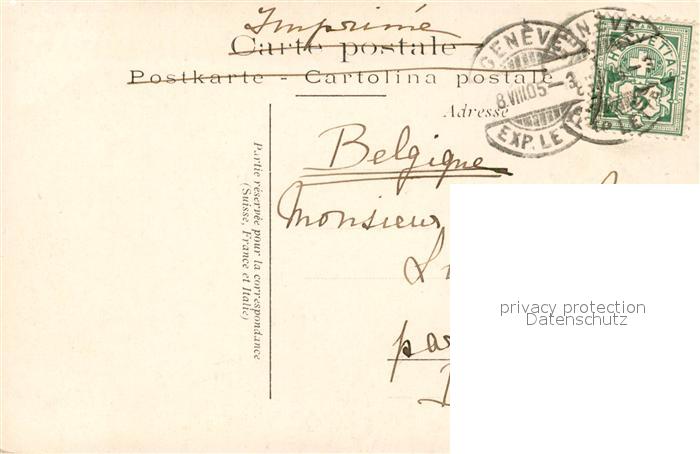 Imprimé
Carte postale
Postkarte - Cartolina postale
GENÈVE
8.VIII.05
EXP. LE
GENÈVE
HELVETIA
5
Adresse
Belgique
Monsieur
privacy protection
Datenschutz
Partie réservée pour la correspondance
(Suisse, France et Italie)